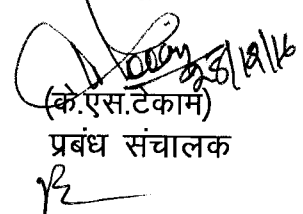 28/12/16
(के.एस.टेकाम)
प्रबंध संचालक